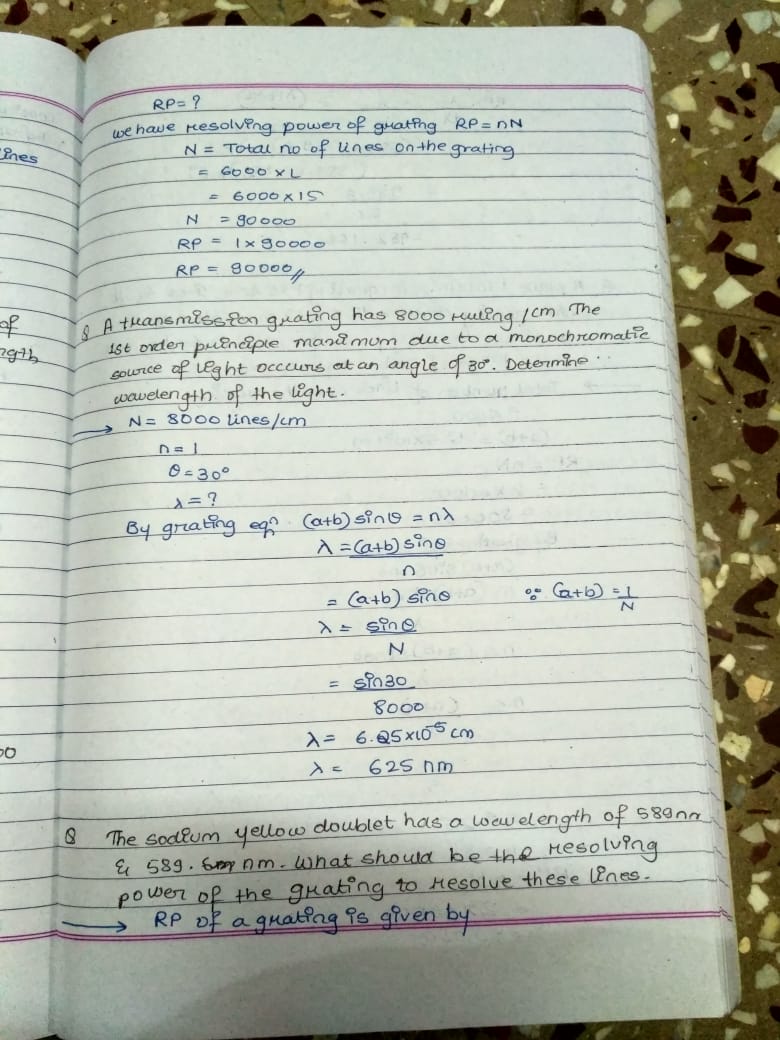 RP= ?
we have resolving power of grating RP=nN
N = Total no of lines on the grating
= 6000 × L
= 6000×15
N = 90000
RP = 1×90000
RP = 90000//
Q A transmission grating has 8000 ruling /cm The
1st order principle maximum due to a monochromatic
source of light occurs at an angle of 30°. Determine
wavelength of the light.
→ N= 8000 lines/cm
n=1
θ=30°
λ=?
By grating eqn (a+b) sinθ = nλ
λ = (a+b) sinθ
n
= (a+b) sinθ ∵ (a+b) = 1
N
λ = sinθ
N
= sin30
8000
λ= 6.25×10⁻⁵ cm
λ= 625 nm
Q The sodium yellow doublet has a wavelength of 589nm
& 589.6 nm. what should be the resolving
power of the grating to resolve these lines.
→ RP of a grating is given by
lines
of